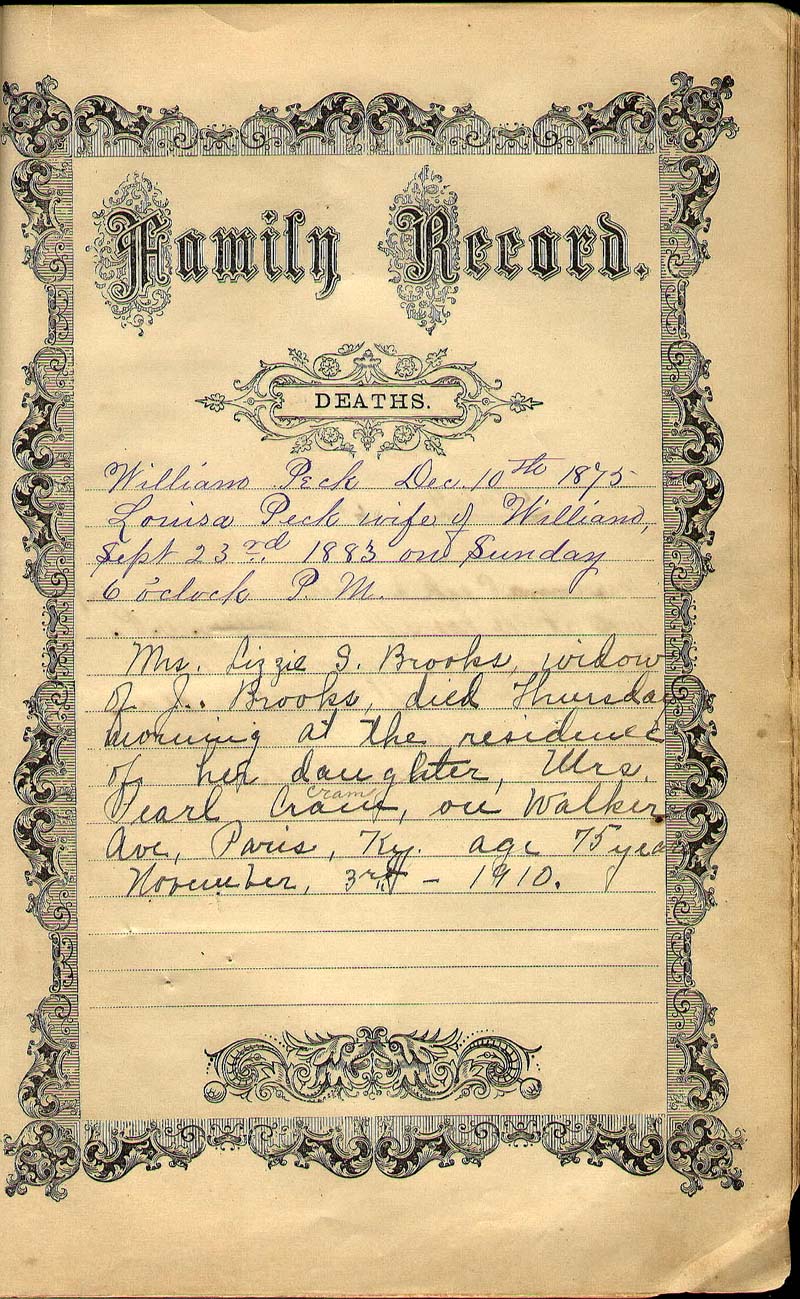 Family Record.
DEATHS.
William Peck Dec. 10th 1875
Louisa Peck wife of William,
Sept 23rd 1883 on Sunday
6 o'clock P. M.
Mrs. Lizzie S. Brooks, widow
of J. Brooks, died Thursday
morning at the residence
of her daughter, Mrs.
cram
Pearl Cram, on Walker
Ave, Paris, Ky. age 75 year
November, 3rd - 1910.